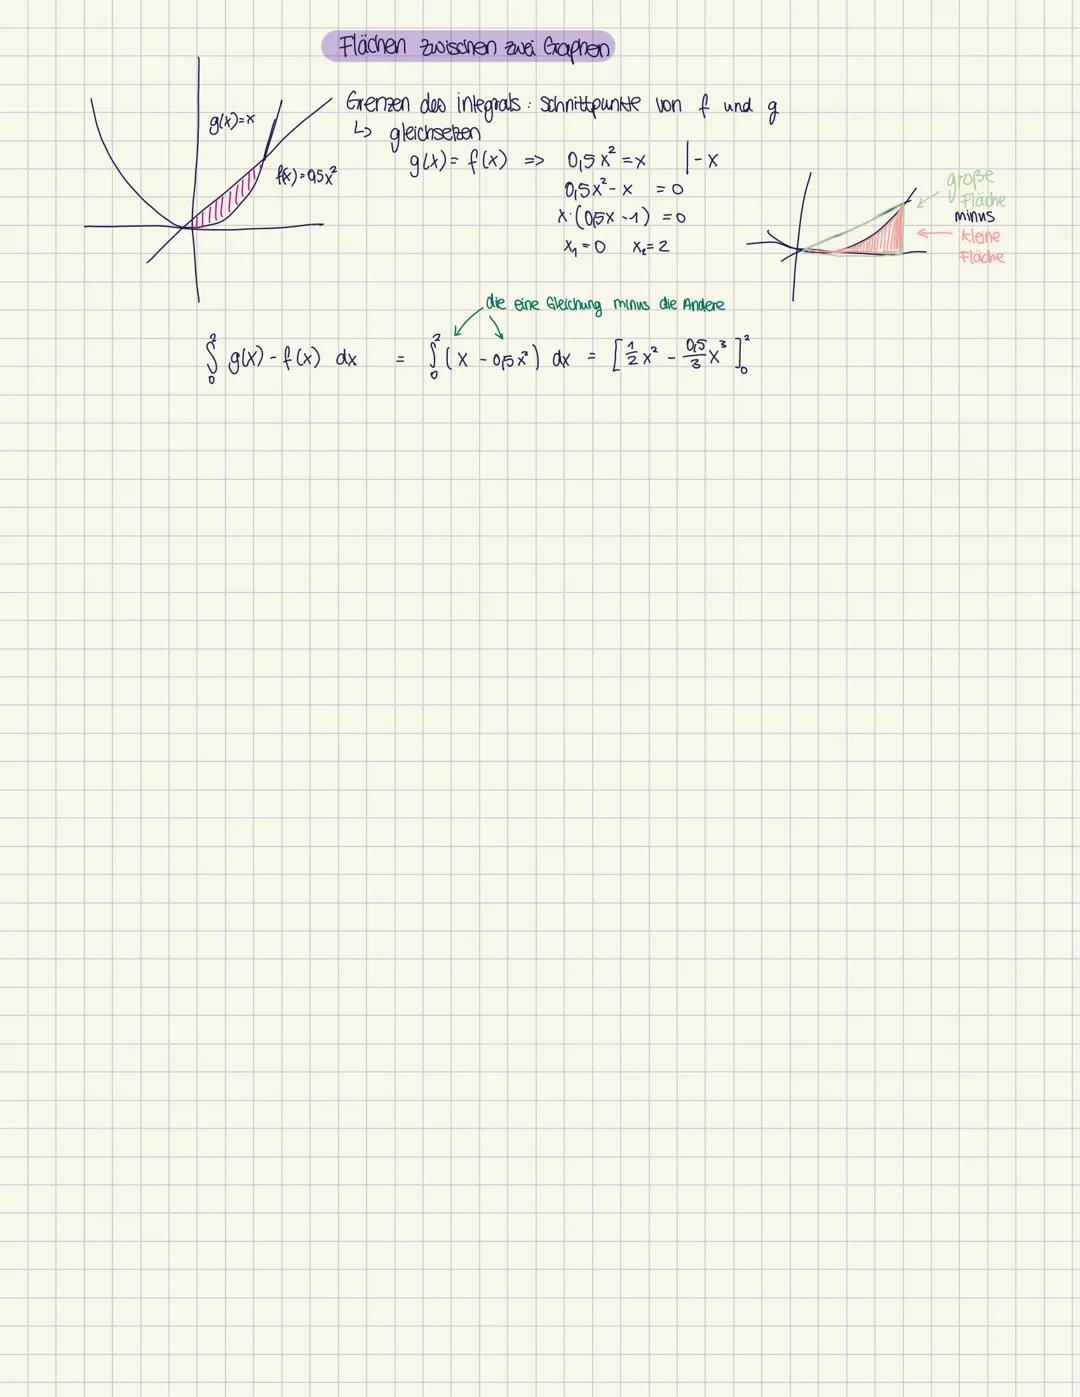 Flächen zwischen zwei Graphen
g(x)=x
f(x)=0,5x²
Grenzen des integrals: Schnittpunkte von f und g
↳ gleichsetzen
g(x) = f(x) => 0,5x² = x | -x
0,5x² - x = 0
x·(0,5x -1) = 0
x₁ = 0 x₂ = 2
große
Fläche
minus
kleine
Fläche
die eine Gleichung minus die Andere
∫₀² g(x) - f(x) dx = ∫₀² (x - 0,5x²) dx = [½x² - 0,5/3 x³]₀²